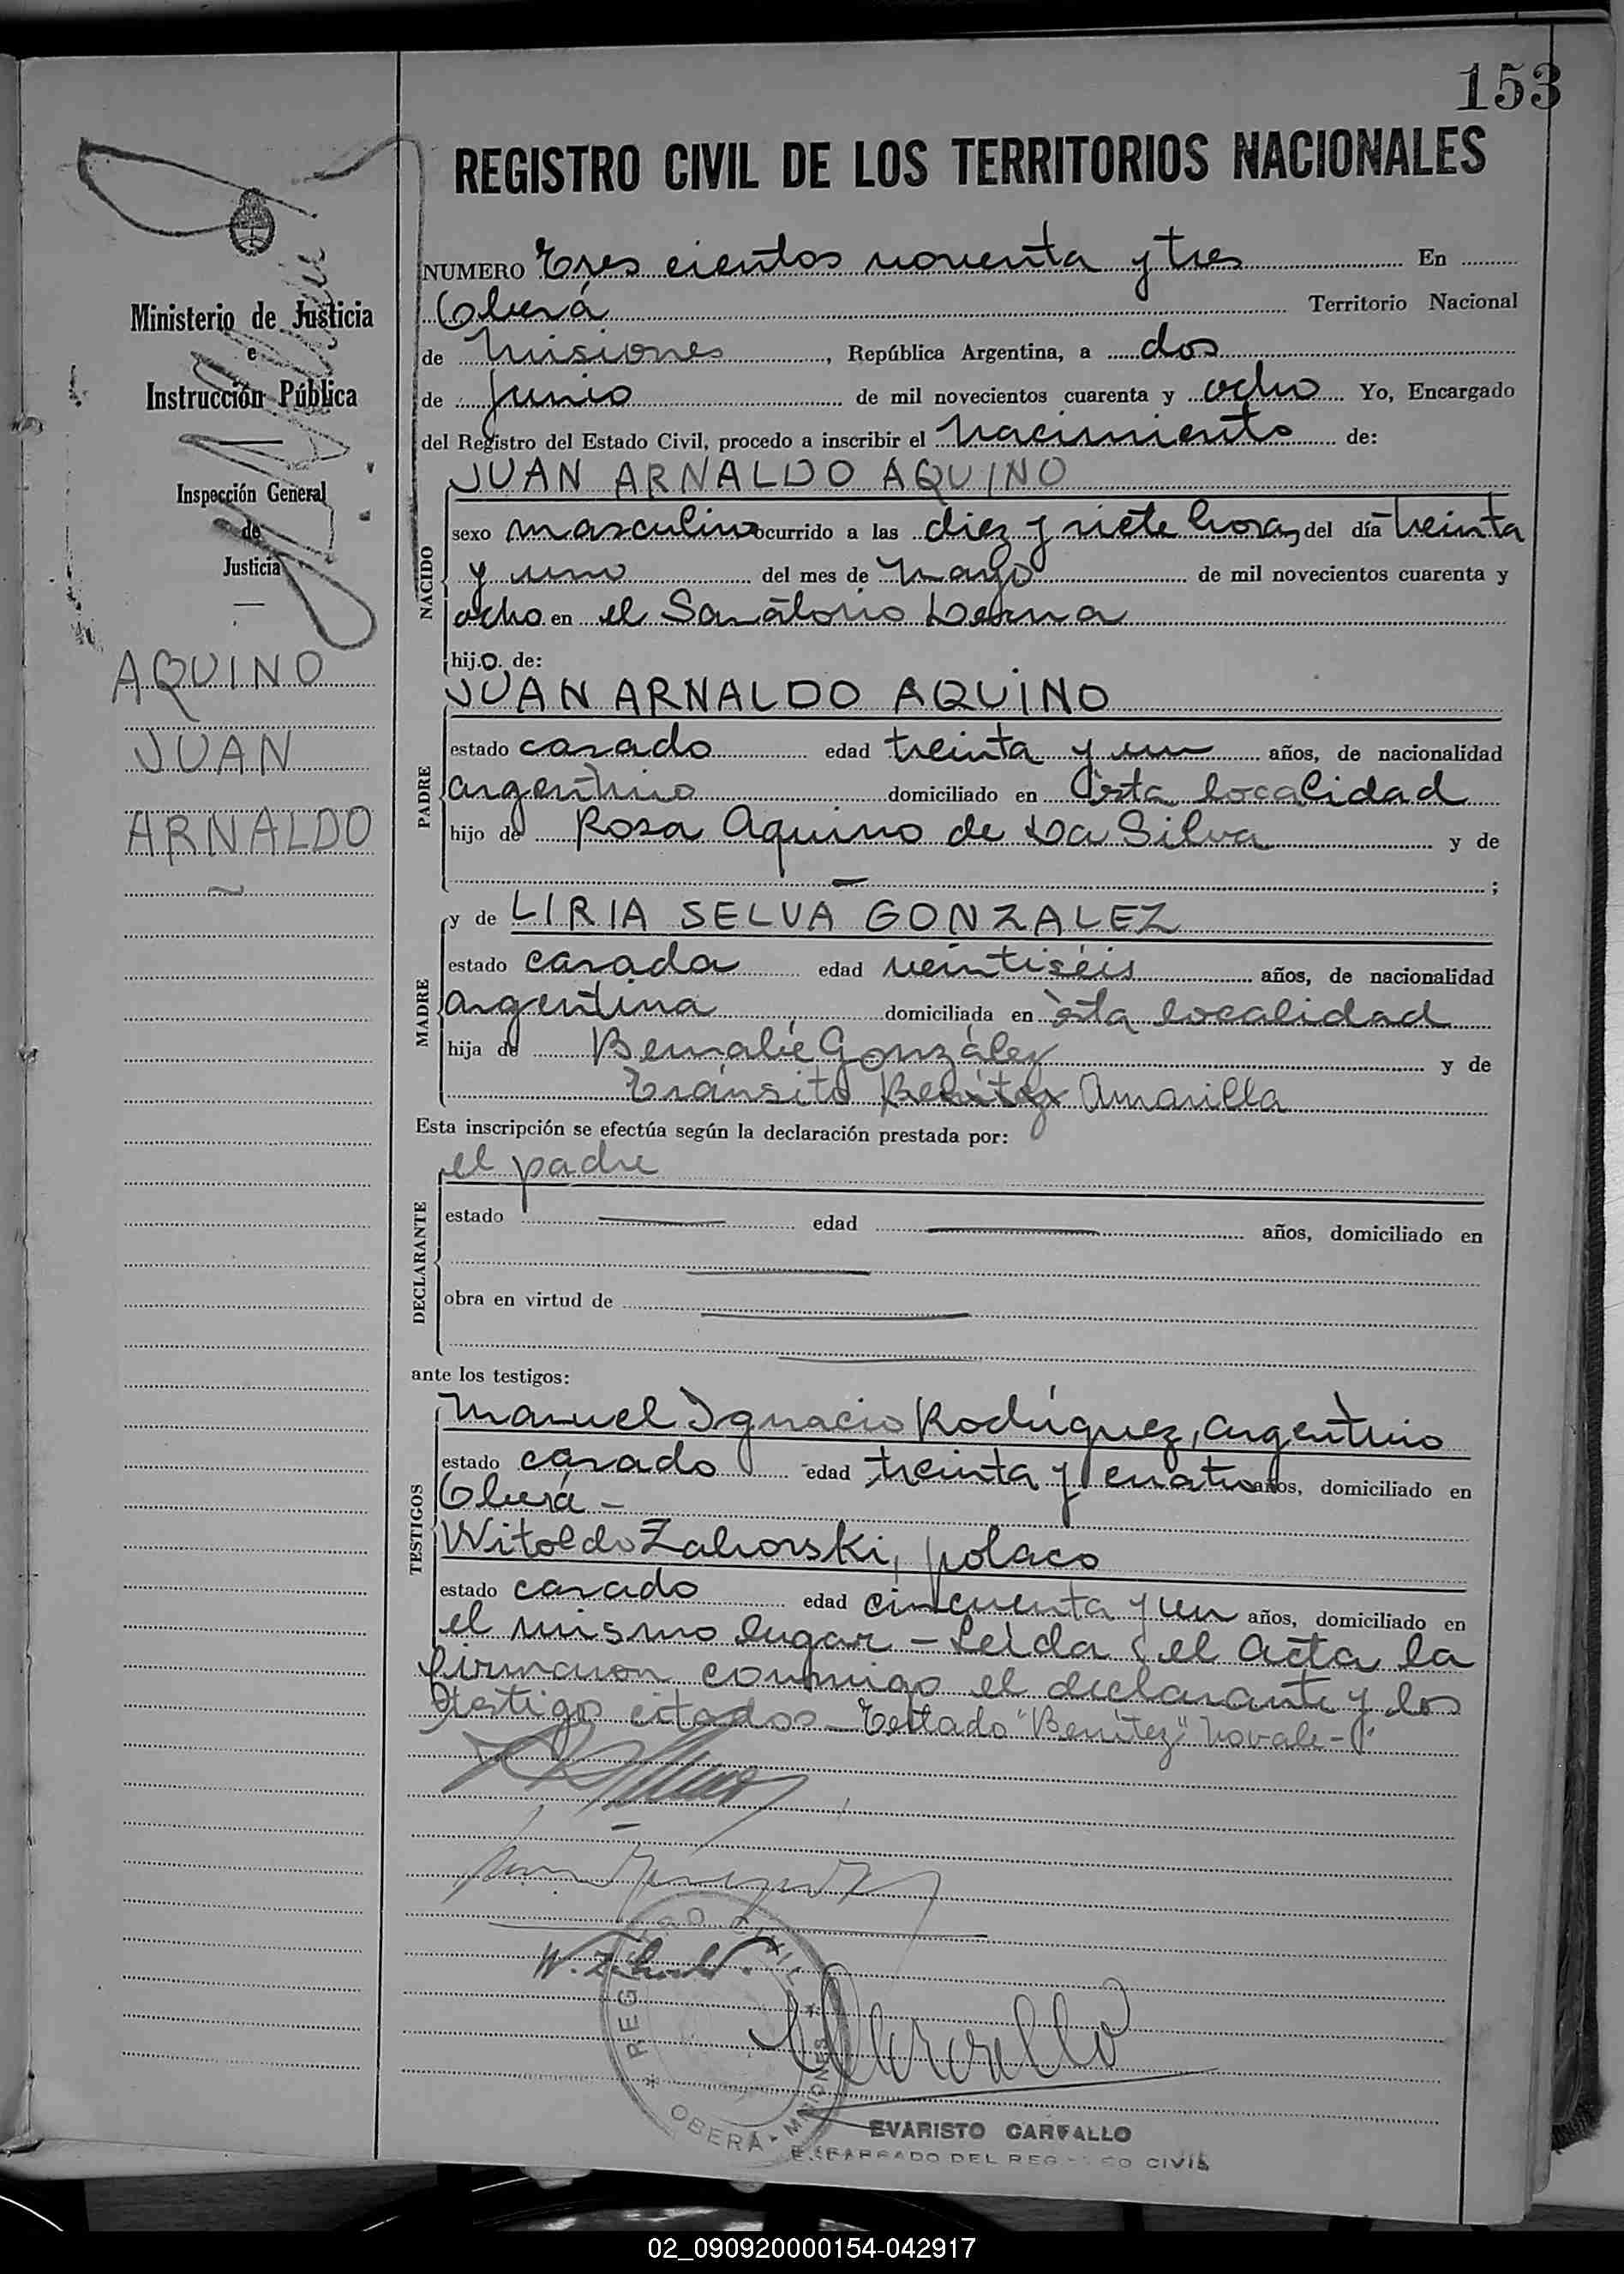 153
REGISTRO CIVIL DE LOS TERRITORIOS NACIONALES
Ministerio de Justicia
e
Instrucción Pública
Inspección General
de
Justicia
AQUINO
JUAN
ARNALDO
NUMERO Tres cientos noventa y tres En
Oberá Territorio Nacional
de Misiones, República Argentina, a dos
de junio de mil novecientos cuarenta y ocho Yo, Encargado
del Registro del Estado Civil, procedo a inscribir el Nacimiento de:
NACIDO
JUAN ARNALDO AQUINO
sexo masculino ocurrido a las diez y siete horas, del día treinta
y uno del mes de Mayo de mil novecientos cuarenta y
ocho en el Sanatorio
hijo de:
PADRE
JUAN ARNALDO AQUINO
estado casado edad treinta y un años, de nacionalidad
argentino domiciliado en ésta localidad
hijo de Rosa Aquino de Da Silva y de
— ;
MADRE
y de LIRIA SELVA GONZALEZ
estado casada edad veintiséis años, de nacionalidad
argentina domiciliada en ésta localidad
hija de Bernabé González y de
Tránsito Benítez Amarilla
Esta inscripción se efectúa según la declaración prestada por:
DECLARANTE
el padre
estado — edad — años, domiciliado en
—
obra en virtud de —
—
ante los testigos:
TESTIGOS
Manuel Ignacio Rodríguez, argentino
estado casado edad treinta y cuatro años, domiciliado en
Oberá -
Witoldo Zahorski, polaco
estado casado edad cincuenta y un años, domiciliado en
el mismo lugar - Leída el acta la
firmaron conmigo el declarante y los
testigo citados - Testado "Benítez" no vale -
REGISTRO CIVIL
OBERÁ - MISIONES
EVARISTO CARVALLO
ENCARGADO DEL REGISTRO CIVIL
02_090920000154-042917